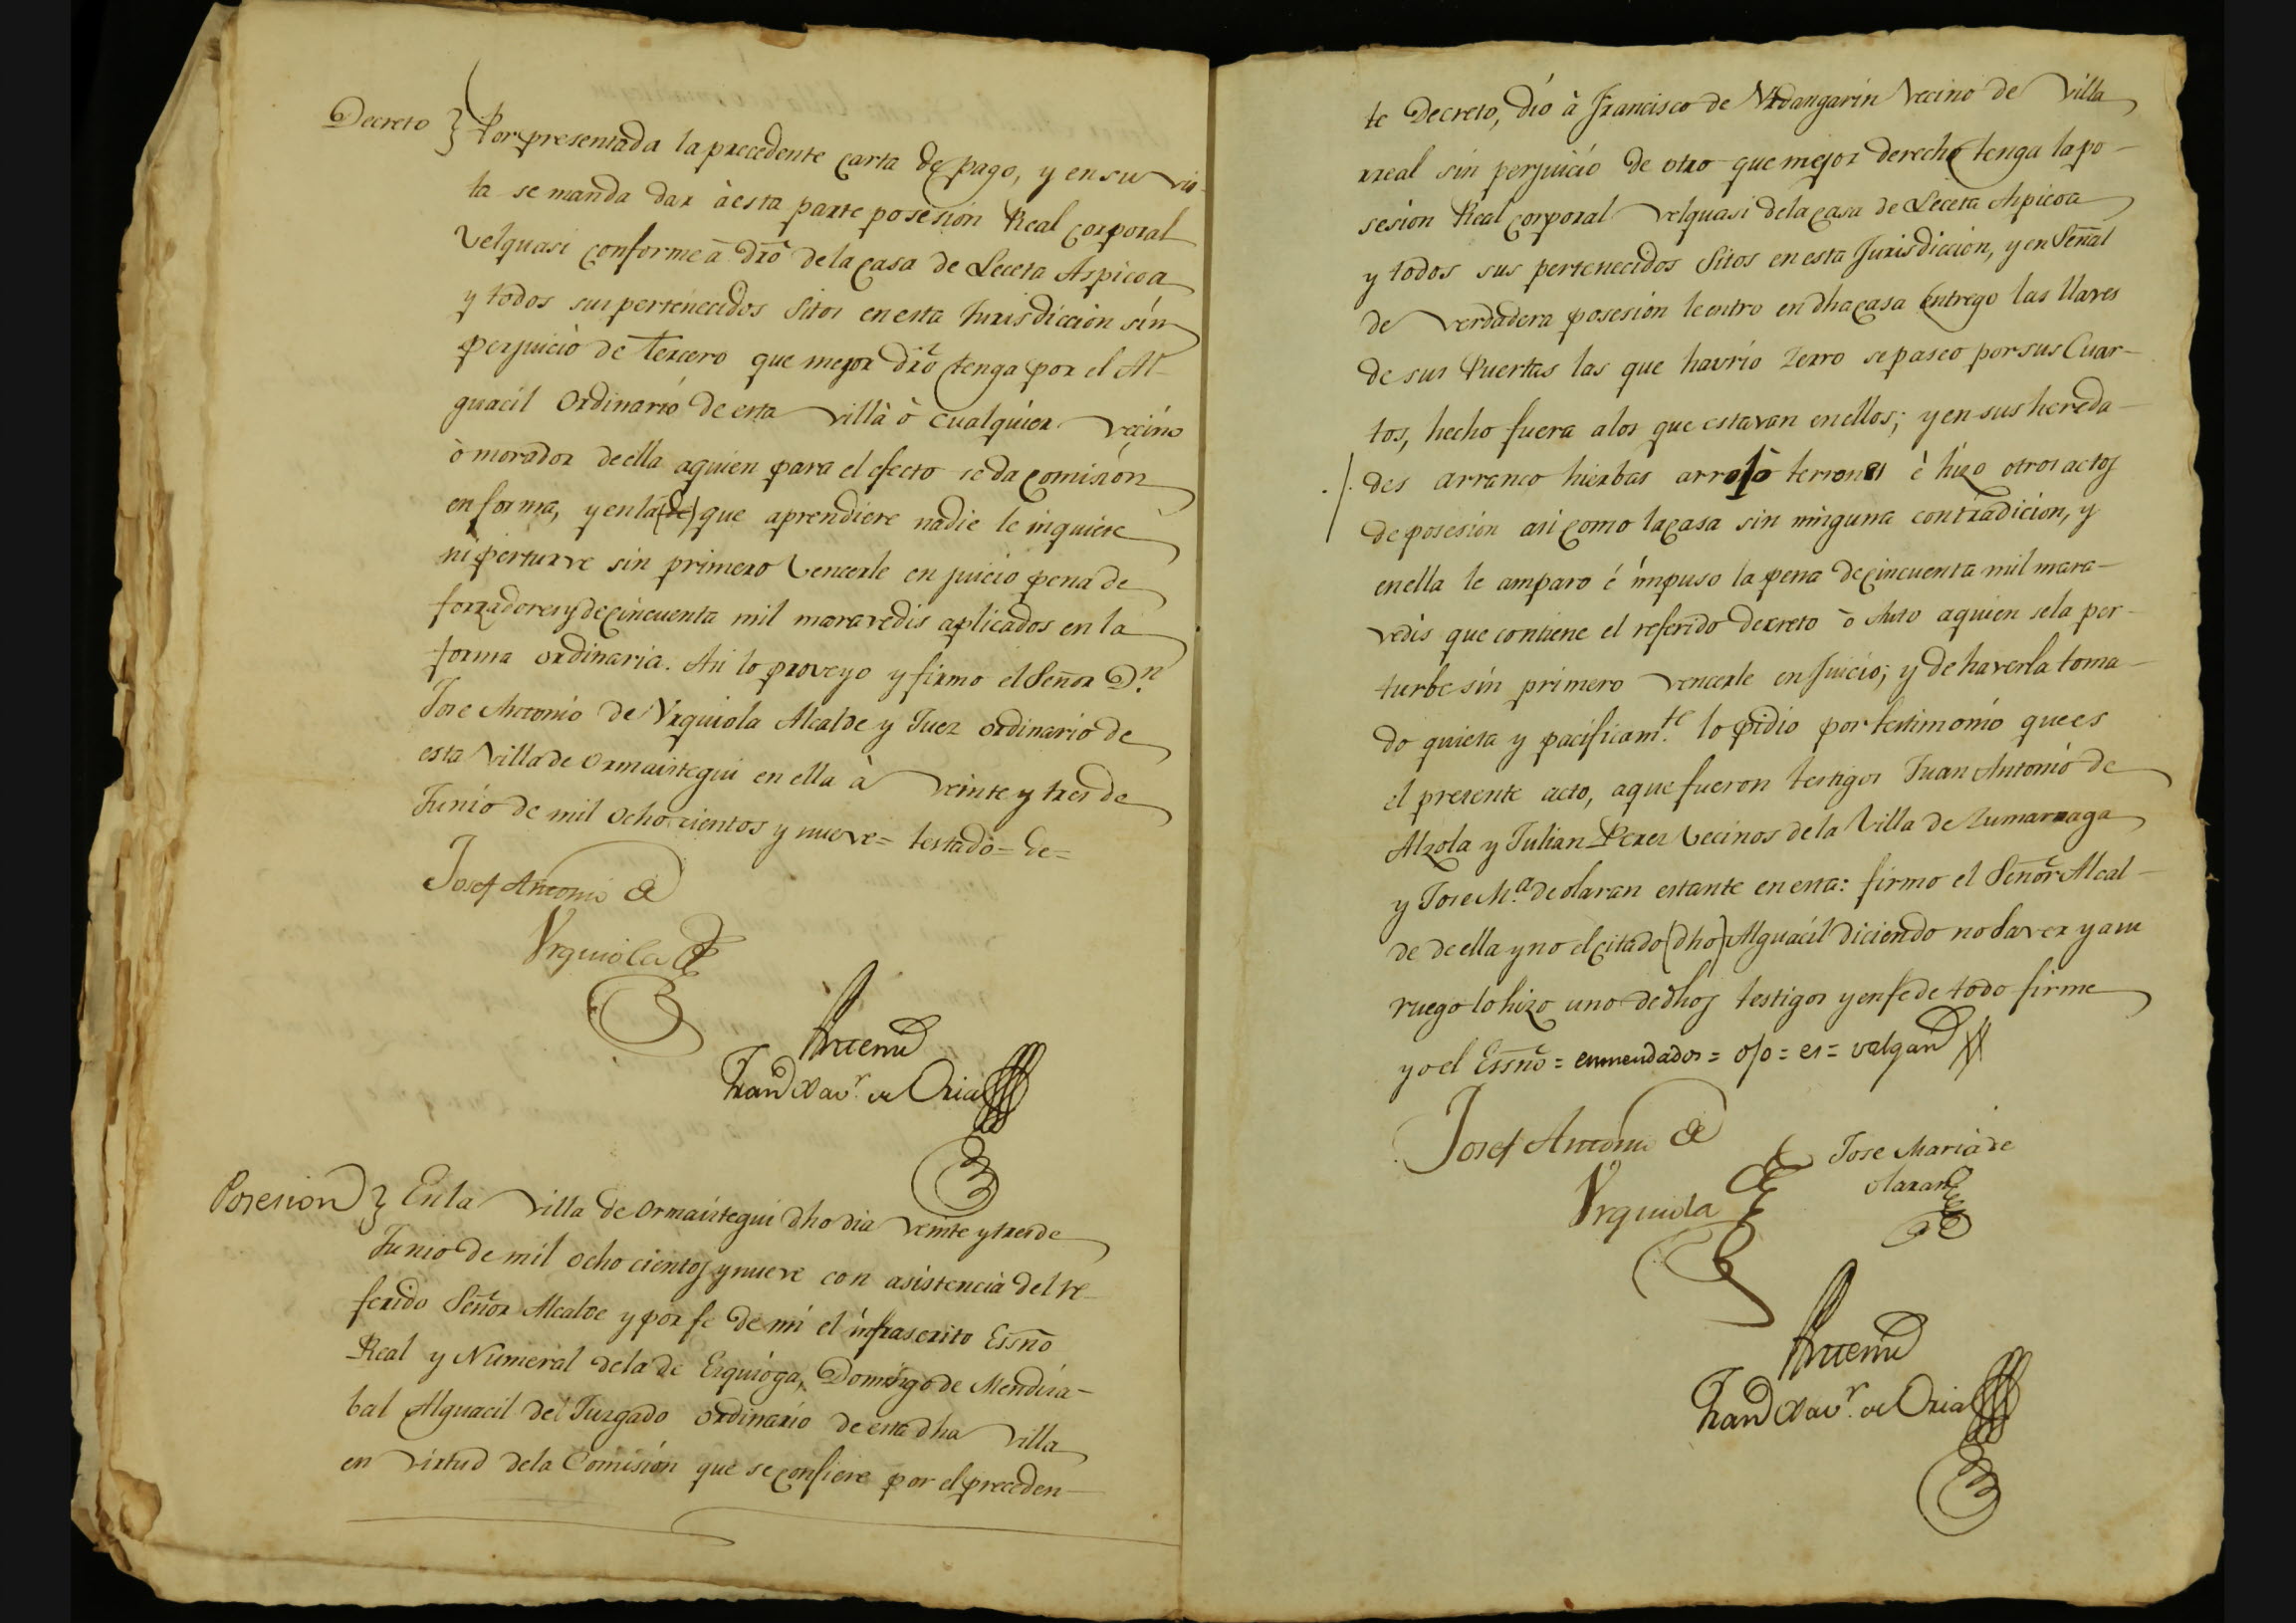 Decreto } Por presentada la precedente carta de pago, y en su vis-
ta se manda dar à esta parte posesión Real corporal
velquasi conforme à dro de la casa de Leceta Aspicoa
y todos sus pertenecidos sitos en esta Jurisdiccion sin
perjuicio de tercero que mejor dro tenga por el Al-
guacil Ordinario de esta villa ò cualquier vecino
ò morador de ella aquien para el efecto se da comisión
en forma, y en la (de) que aprendiere nadie le inquiete
ni perturve sin primero vencerle en juicio pena de
forzadores y de cincuenta mil maravedis aplicados en la
forma ordinaria. Asi lo proveyo y firmo el Señor Dn.
Jose Antonio de Vrquiola Alcalde y Juez ordinario de
esta Villa de Ormaiztegui en ella à veinte y tres de
Junio de mil ocho cientos y nueve = testado = de =
Josef Antonio de
Vrquiola
Antemi
Fran Xavr. de Oria
Posesion } En la Villa de Ormaiztegui dho dia veinte y tres de
Junio de mil ocho cientos y nueve con asistencia del re-
ferido Señor Alcalde y por fe de mi el infrascrito Essno
Real y Numeral de la de Ezquioga, Domingo de Mendiza-
bal Alguacil del Juzgado ordinario de esta dha villa
en virtud de la Comisión que se confiere por el preceden-
te Decreto, dio à Francisco de Vrdangarin vecino de Villa
rreal sin perjuicio de otro que mejor derecho tenga la po-
sesion Real corporal velquasi de la casa de Leceta Aspicoa
y todos sus pertenecidos sitos en esta Jurisdiccion, y en Señal
de verdadera posesion le entro en dha casa entrego las llaves
de sus Puertas las que havrio zerro se paseo por sus Cuar-
tos, hecho fuera a los que estavan en ellos; y en sus hereda-
des arranco hierbas arrojò terrones è hizo otros actos
de posesion asi como la casa sin ninguna contradicion, y
en ella le amparo é impuso la pena de cincuenta mil mara-
vedis que contiene el referido decreto ò Auto aquien se la per-
turbe sin primero vencerle en Juicio; y de haverla toma-
do quieta y pacificamte. lo pidio por testimonio que es
el presente acto, a que fueron testigos Juan Antonio de
Alzola y Julian Perez Vecinos de la Villa de Zumarraga
y Jose Ma. de olaran estante en esta: firmo el Señor Alcal-
de de ella y no el citado (dho) Alguacil diciendo no saver y a su
ruego lo hizo uno de dhos testigos y en fe de todo firme
yo el Essno = enmendados = ojo = es = valgan
Josef Antonio de
Vrquiola
Jose Maria de
olaran
Antemi
Fran Xavr. de Oria